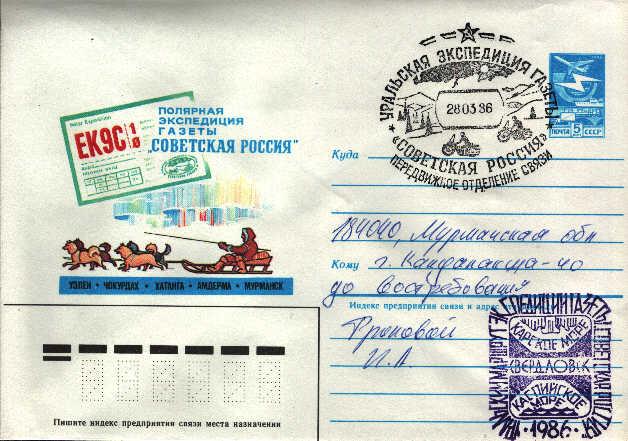 ПОЛЯРНАЯ
ЭКСПЕДИЦИЯ
ГАЗЕТЫ
„СОВЕТСКАЯ РОССИЯ"
EK9C 1/0
УЭЛЕН • ЧОКУРДАХ • ХАТАНГА • АМДЕРМА • МУРМАНСК
УРАЛЬСКАЯ ЭКСПЕДИЦИЯ ГАЗЕТЫ
28 03 86
«СОВЕТСКАЯ РОССИЯ»
ПЕРЕДВИЖНОЕ ОТДЕЛЕНИЕ СВЯЗИ
ПОЧТА 5 СССР
Куда
184040, Мурманская обл
Кому г. Кандалакша-40
до востребования
Индекс предприятия связи и адрес
Фроловой
И.А.
КАРСКОЕ МОРЕ
СВЕРДЛОВСК
КАСПИЙСКОЕ
МОРЕ
1986
Пишите индекс предприятия связи места назначения